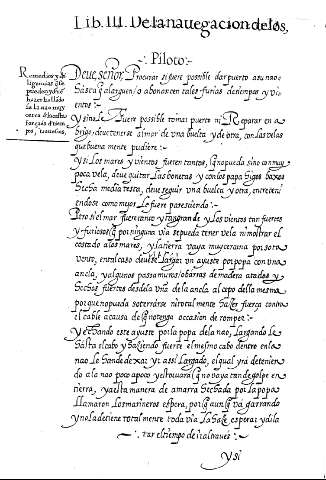 Lib. III. De la nauegacion de los,
Piloto
Remedios y di
ligencias que
pueden y deuẽ
hazer hallãdo
se la nao muy
cerca de la costa
Deue, señor, Procurar si fuere possible dar puerto a su nao
hasta q̃ alarguen, o abonancen tales furias de tiempos y vi
entos:
Y sino le fuere possible tomar puerto ni Reparar en a
brigo, deue tenerse al mar de vna buelta y de otra, con las velas
que buena mente pudiere:
Y si Los mares y vientos fueren tantos, q̃ no pueda sino con muy
poca vela, deue quitar Las bonetas y con los papahigos baxos
hecha media testa, deue seguir vna buelta y otra, entreteni
endose como mejor Le fuere paresciendo:
Pero si el mar fuere tanto y tan grande y Los vientos tan fuertes
y furiosos q̃ por ninguna via se pueda tener vela ni mostrar el
costado a los mares, y la tierra vaya muy cercana por sota
vento, en tal caso deue de Largar vn ayuste por popa con vna
ancla, y algunos passamuros o barras de madera atadas y
hechos fuertes desde la vña de la ancla al cepo de la mesma
por que no pueda soterrarse ni total mente hazer fuerça contra
el cable a causa de q̃ no tenga occasion de romper:
Y echando este ayuste por la popa de la nao, Largando le
hasta el cabo y haziendo fuerte el mesmo cabo dentro en la
nao le han de dexar yr assi Largado, el qual yrá detenien
do a la nao poco a poco y estoruará q̃ no vaya tan de golpe en
tierra, y a esta manera de amarra hechada por la popa
Llamaron Los marineros espera, porq̃ aunq̃ vá garrando
y no la detiene total mente toda via La haze esperar y dila
tar el tiempo de ir al traues
Y si